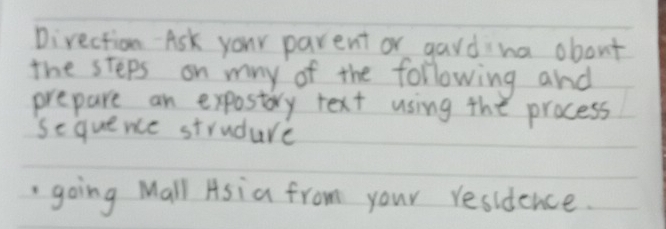 Direction - Ask your parent or gardina obont
the steps on mny of the following and
prepare an expostory text using the process
sequence strudure
• going Mall Asia from your residence.